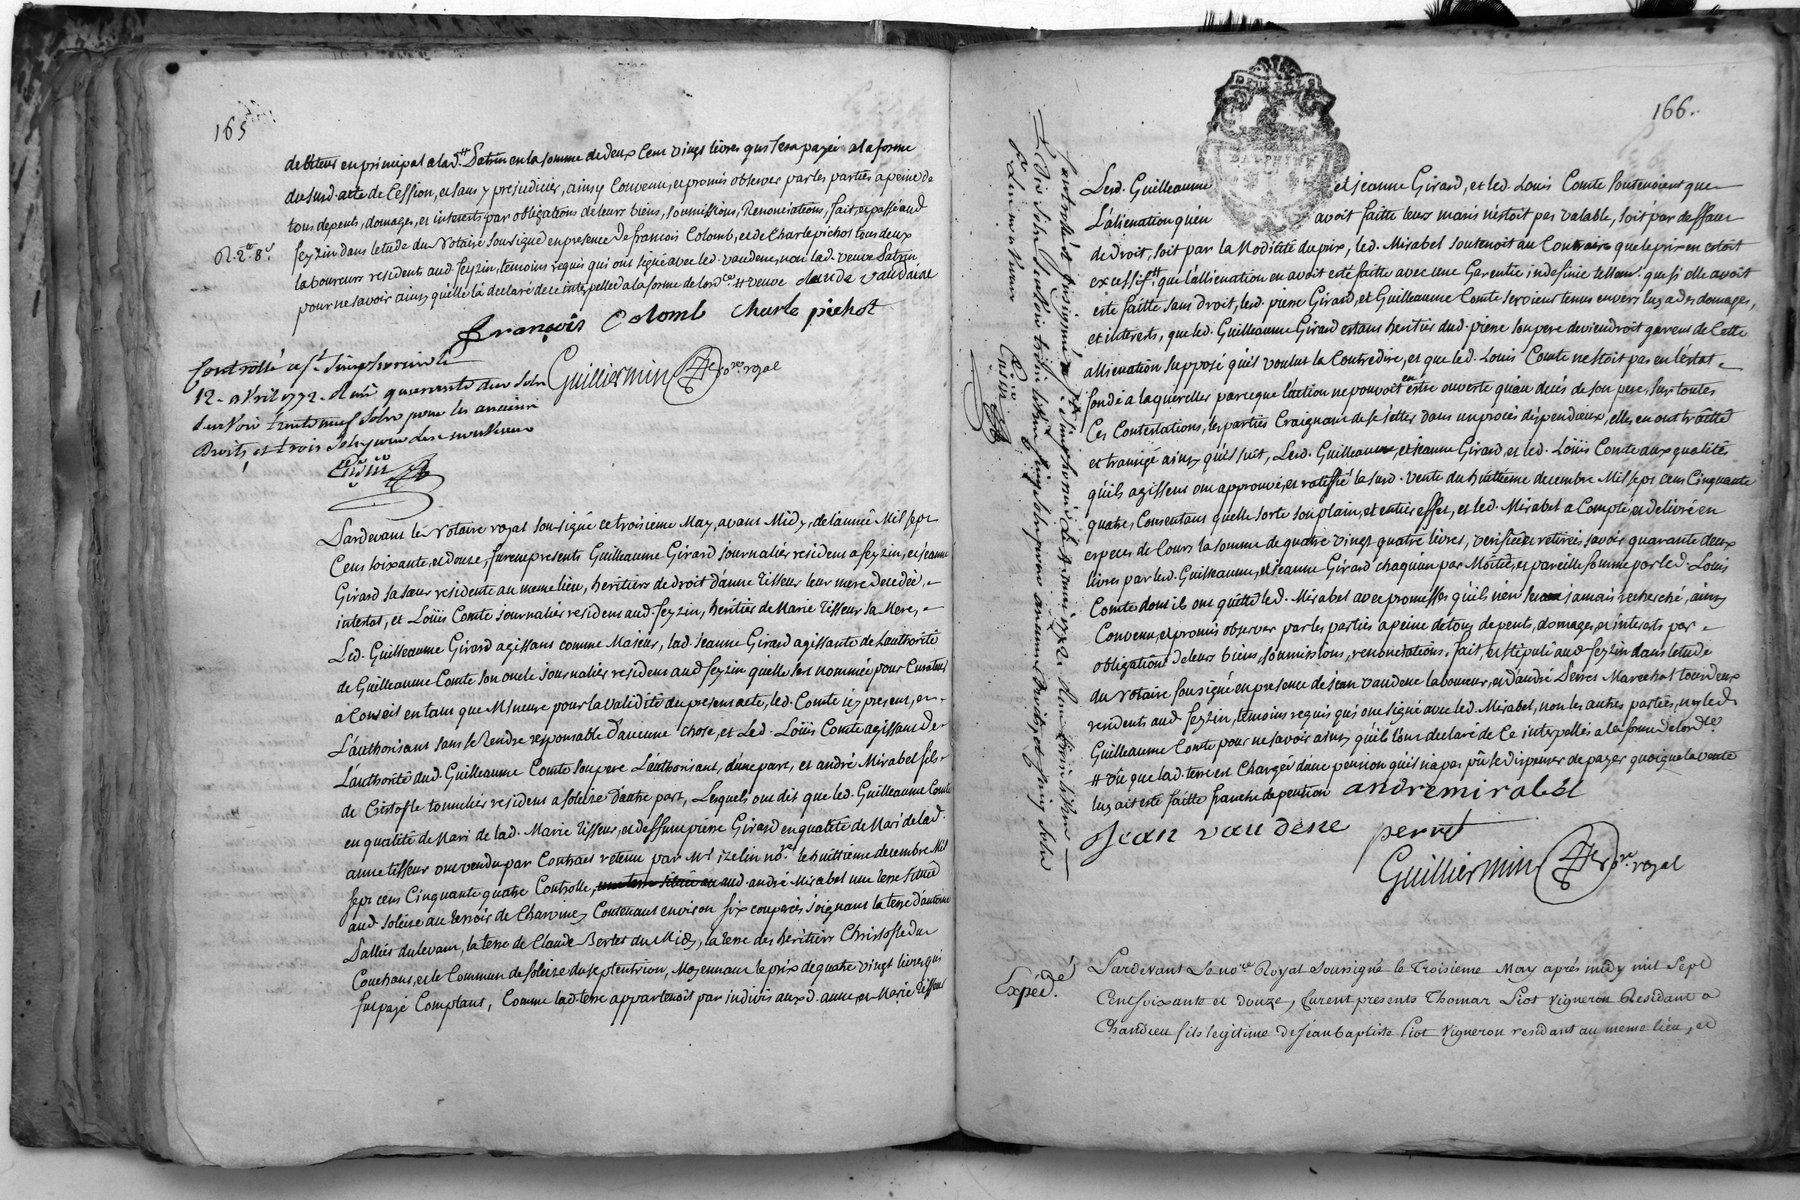 165
debiteurs en principal a lad. # Satrin en la somme de deux Cent vingt livres qui sera payée a la forme
du susd. acte de Cession, et sans y prejudicier, ainsy Convenu, et promis observer par les parties a peine de
tous depents, domages, et interests par obligations de leurs biens, soumissions, Renonciations, fait, et passé aud.
feyzin dans letude du Notaire soussigné en presence de francois Colomb, et de Charle pichot tous deux
R. 2tt 8s
laboureurs residents aud. feyzin, temoins requis qui ont signé avec led. vaudene, non lad. veuve Satrin
pour ne savoir ainsy quelle la declaré de ce interpellée a la forme de lordce. # veuve claude vaudaine
françois Colomb Charle pichot
Guilliermin nore. royal
Controllé a St. Simphorien le
12. avril 1772. Reçu quarante deux sols
sçavoir trente neuf sols pour les anciens
Droits, et trois sols pour les nouveaux
Pardevant le Notaire royal soussigné ce troisieme May, avant Midy, de l'année Mil sept
Cens soixante, et douze, furent presents Guilleaume Girard journalier resident a feyzin, et jeanne
Girard sa sœur residente au meme lieu, heritiers de droit d'anne Tisseur leur mere decedée
intestat, et Loüis Comte journalier resident aud. feyzin, heritier de Marie Tisseur sa Mere,
Led. Guilleaume Girard agissant comme Majeur, lad. jeanne Girard agissante de L'authorité
de Guilleaume Comte son oncle journalier resident aud feyzin quelle sest nommée pour Curateur
a Conseil en tant que Mineure pour la validité du present acte, led. Comte icy present, en
L'authorisant sans se rendre responsable D'aucune Chose, et Led. Loüis Comte agissant de
L'authorité dud. Guilleaume Comte son pere L'authorisant, d'une part, et andré Mirabel fils
de Cristofle tonnelier resident a soleize d'autre part, Lesquels ont dit que led. Guilleaume Comte
en qualité de Mari de lad. Marie Tisseur, et deffunt pierre Girard en qualité de Mari de lad.
anne tisseur ont vendu par Contract retenu par Me izelin nore. le huittieme decembre Mil
sept cens Cinquante quatre Controlle, aud. andré Mirabel une terre située
aud soleize au terroir de Charvine, Contenant environ six couperées joignant la terre d'antoine
Sallies du levant, la terre de Claude Bertet du Midy, la terre des heritiers Christofle du
Couchant, et le Commun de soleize du septentrion, Moyennant le prix de quatre vingt livres qui
fut payé Comptant, Comme lad. terre appartenoit par indivis auxd. anne et Marie Tisseur
166.
DEUX SOLS
DAUPHINÉ
Led. Guilleaume et jeanne Girard, et led. Louis Comte soutenoient que
L'alienation qu'en avoit faitte leurs maris n'estoit pas valable, soit par deffaut
de droit, soit par la Modicité du prix, led. Mirabel soutenoit au Contraire que le prix en estoit
excessif, # que l'allienation en avoit esté faitte avec une Garentie indefinie tellemt. que si elle avoit
esté faitte sans droit, led. pierre Girard, et Guilleaume Comte seroient tenus envers luy a des domages,
et interets, que led. Guilleaume Girard estant heritier dud. pierre son pere deviendroit garent de Cette
allienation supposé qu'il voulut la Contredire, et que led. Louis Comte n'estoit pas en l'estat
fondé a la quereller parceque l'action ne pouvoit en estre ouverte qu'au decès de son pere, sur toutes
Ces Contestations, les parties Craignant de se jetter dans un procès dispendieux, elles en ont traitté
et transigé ainsy qu'il suit, Led. Guilleaume, et jeanne Girard, et led. Loüis Comte aux qualités
qu'ils agissent ont approuvé, et ratiffié la susd. vente du huittieme decembre Mil sept cens Cinquante
quatre, Consentant quelle sorte son plain, et entier effet, et led. Mirabel a Compté, et delivré en
especes de Cours la somme de quatre vingt quatre livres, veriffiée et retirée, savoir quarante deux
livres par led. Guilleaume, et jeanne Girard chaqu'un par Moitié, et pareille somme par led. Louis
Comte dont ils ont quitté led. Mirabel avec promesses qu'il n'en sera jamais recherché, ainsy
Convenu, et promis observer par les parties a peine de tous depents, domages, et interests par
obligations de leurs biens, soumissions, renonciations, fait, et stipulé aud feyzin dans letude
du Notaire soussigné en presence de jean vaudene laboureur, et d'andré Perret Marechal tous deux
residents aud feyzin, temoins requis qui ont signé avec led. Mirabel, non les autres parties, ny led.
Guilleaume Comte pour ne savoir ainsy qu'ils l'ont declaré de Ce interpellés a la forme de lordce
# vû que lad. terre est Chargée d'une pension qu'il n'a pas pû se dispenser de payer quoique la vente
luy ait esté faitte franche de pension andremirabel
Jean vaudene perret
Guilliermin nore. royal
Expédié.
Pardevant Le nore Royal soussigné le Troisieme May après midy mil sept
Cent soixante et douze, furent presents Thomas Piot vigneron Residant a
Chandieu fils legitime de Jean baptiste Piot vigneron residant au meme lieu, et